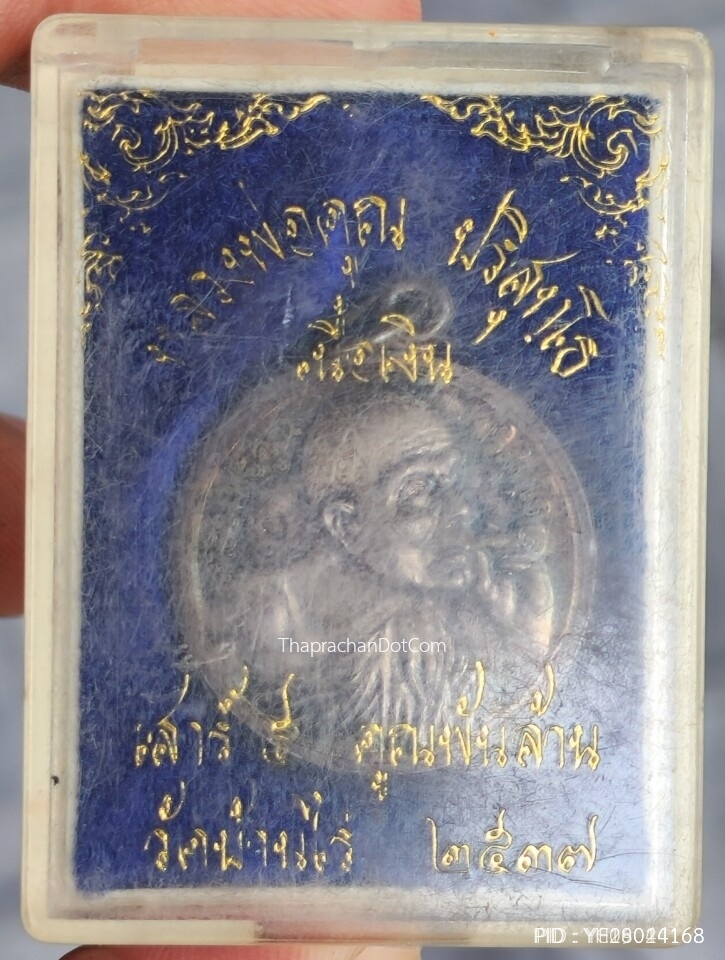 หลวงพ่อคูณ ปริสุทฺโธ
เนื้อเงิน
ThaprachanDotCom
เสาร์ ๕ คูณพันล้าน
วัดบ้านไร่ ๒๕๓๗
PID : YE28024168